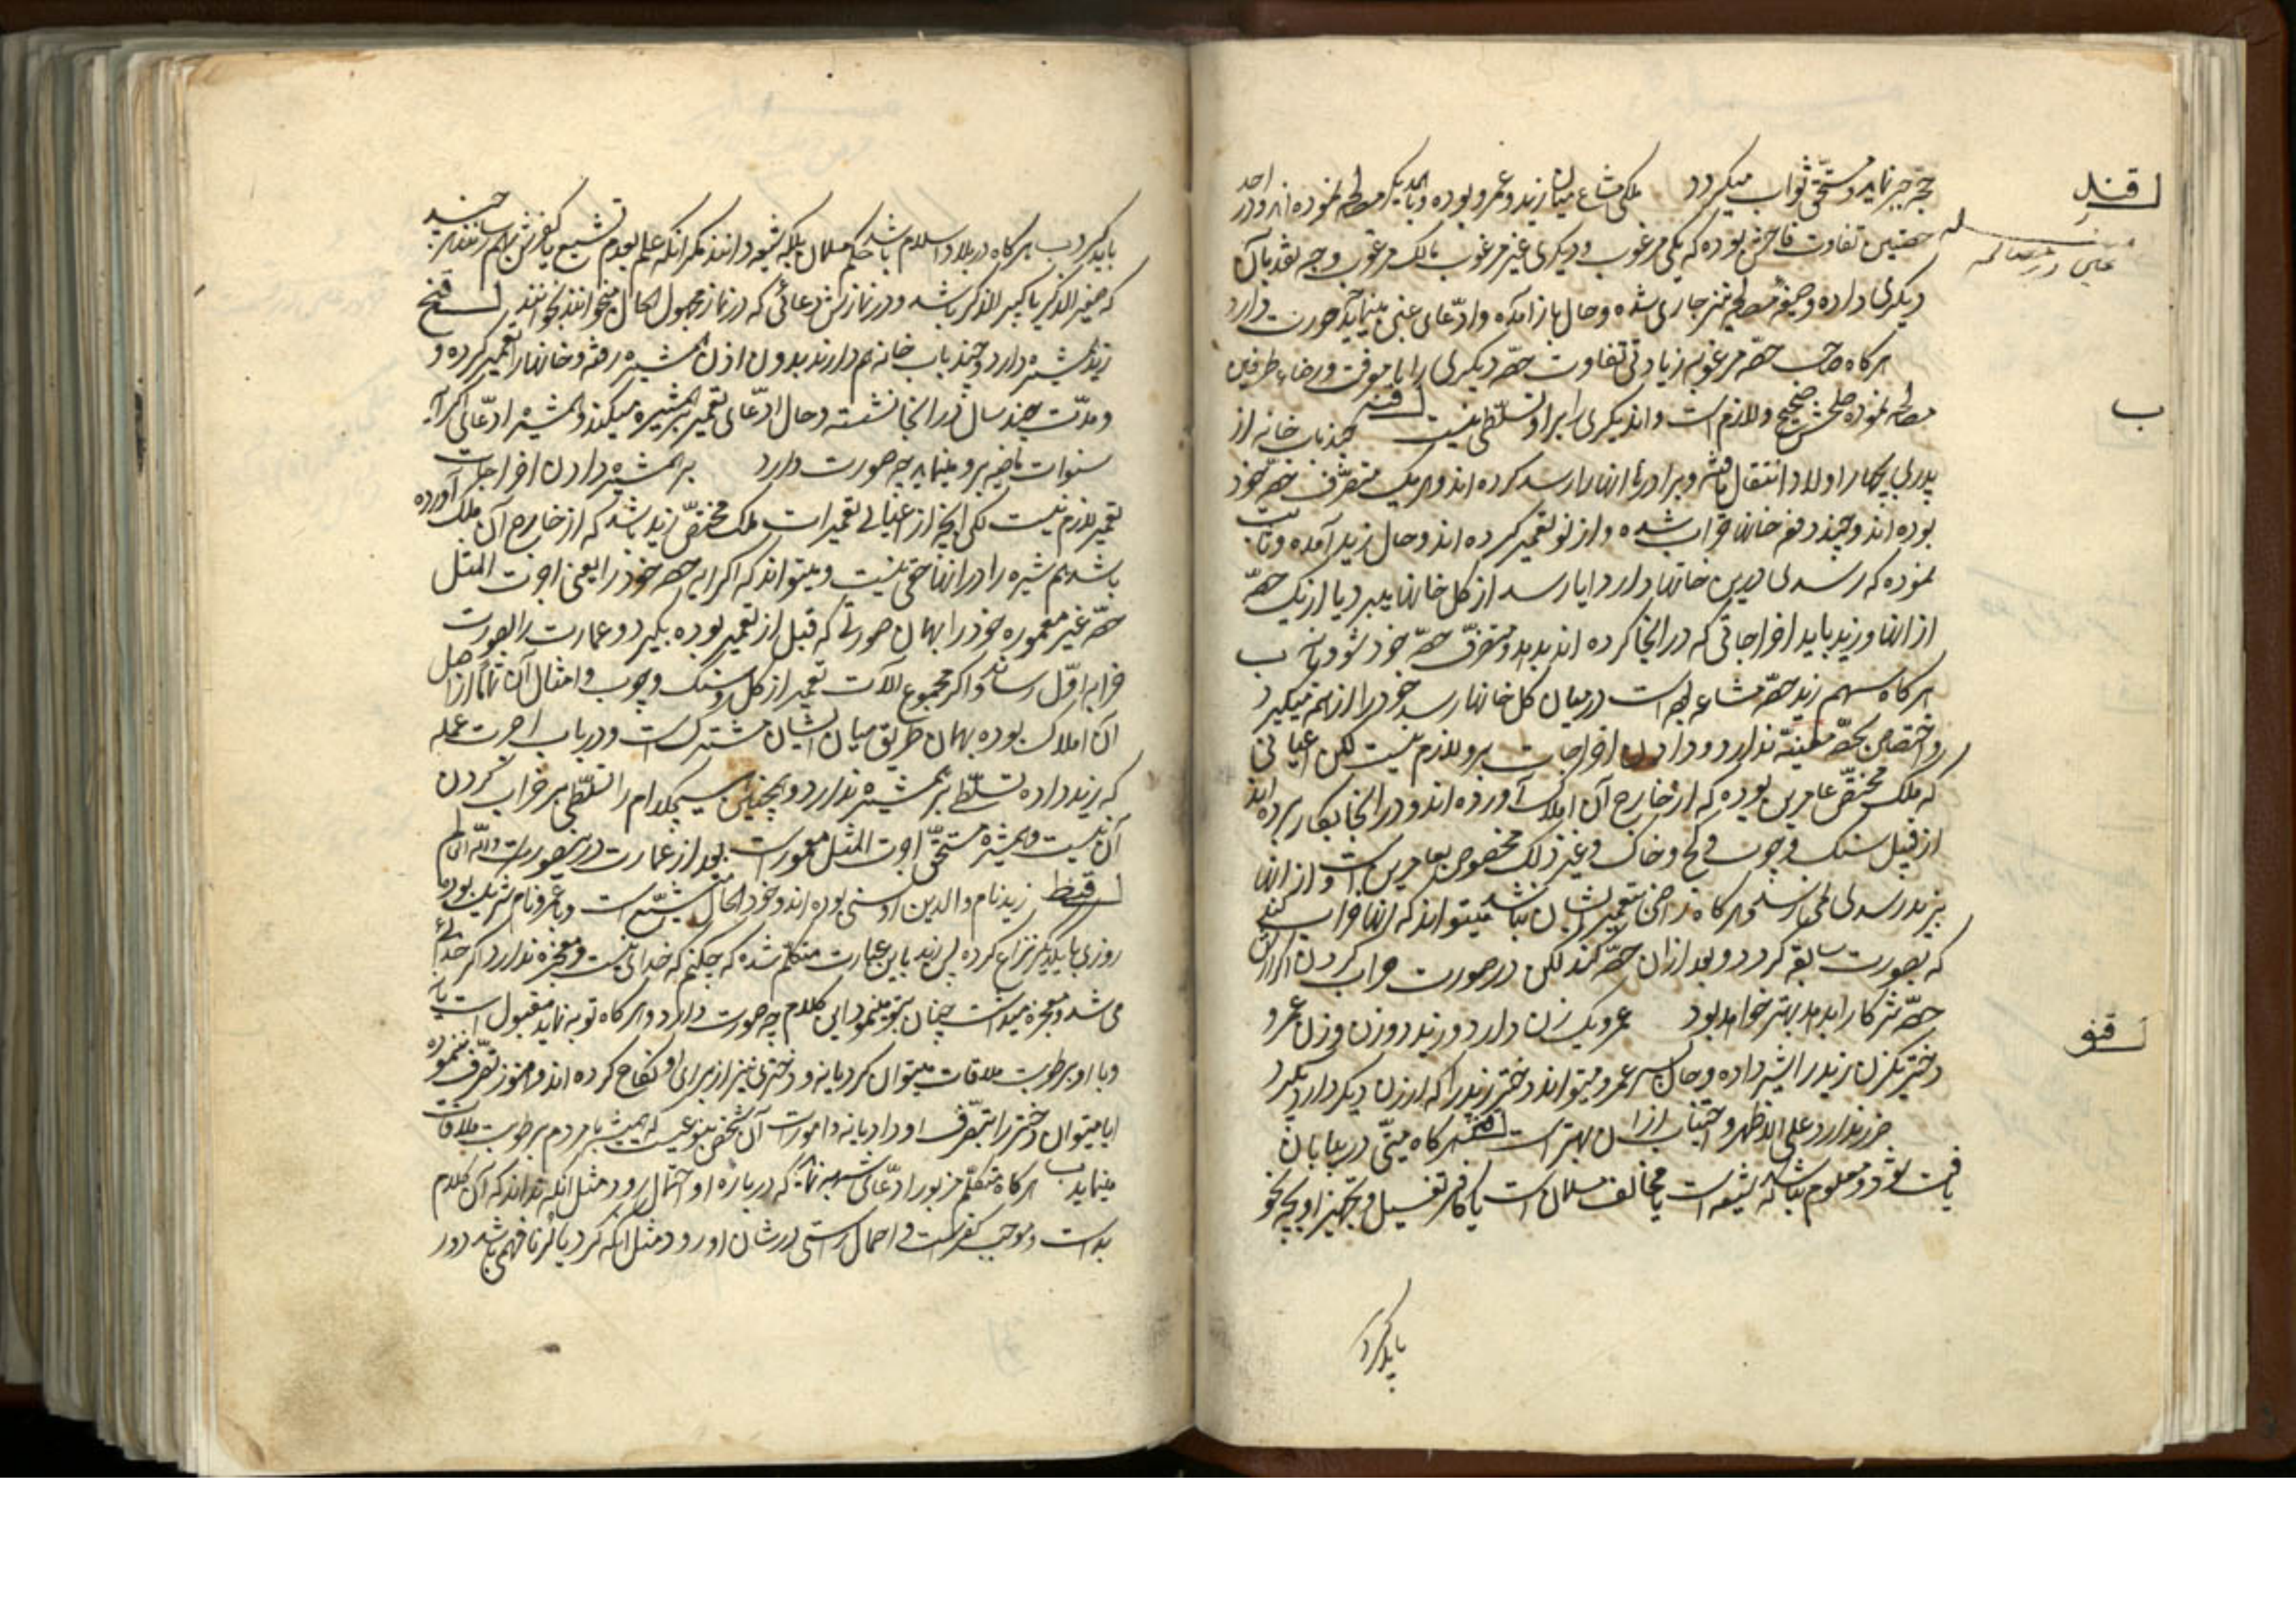 قند
حجّ خبر نماید و مستحقّ ثواب میکردد ملکی مشاع میان زید و عمرو بوده و با یکدیکر مصالحه نموده اند و در احد
غبن در مصالحه
حصتین تفاوت فاحش بوده که یکی مرغوب و دیکری غیر مرغوب مالک مرغوب وجه نقد بآن
دیکری داده و صیغه مصالحه نیز جاری شده و حال باز آمده و ادّعای غبن مینماید چه صورت دارد
ب
هرکاه صاحب حصّه مرغوبه زیادتی تفاوت حصّه دیکری را با معرفت و رضاء طرفین
مصالحه نموده صلحش صحیح و لازم است و اندیکری را بر او تسلّطی نیست قنه چند باب خانه از
پدری بچهار اولاد انتقال یافته و برادرها انها را رسد کرده اند و هر یک متصرّف حصّه خود
بوده اند و چند دفعه خانها خراب شده و از نو تعمیر کرده اند و حال زید آمده و ثابت
نموده که رسدی درین خانها دارد ایا رسد از کل خانها میبرد یا از یک حصّه
از انها و زید باید اخراجاتی که در انجا کرده اند بدهد و متصرّف حصّه خود شود یا نه ب
هرکاه سهم زید حصّه مشاعه است درمیان کل خانها رسد خود را از همه میکیرد
و اختصاص بحصّه معینه ندارد و دادن اخراجات برو لازم نیست لکن اعیانی
که ملک مختصّ عامرین بوده که از خارج آن املاک آورده اند و در انجا بکار برده اند
از قبیل سنک و چوب و کچ و خاک و غیر ذلک مخصوص بعامرین است و از انها
بزید رسدی نمیرسد و هرکاه راضی بتعمیر ایشان نباشد میتواند که انها خراب کند
که بصورت سابقه کردد و بعد از ان حصّه کند لکن در صورت خراب کردن اکر ازین
حصّه شرکا را بدهد بهتر خواهد بود عمرو یک زن دارد و زید دو زن و زن عمرو
قنو
دختر یکزن زید را شیر داده و حال پسر عمرو میتواند دختر زید را که از زن دیکر دارد بکیرد
ضرر ندارد علی الاظهر و اجتناب از ان بهتر است قنز هرکاه میتی در بیابان
یافت شود و معلوم نباشد که شیعه است یا مخالف مسلمان است یا کافر تغسیل و تجهیز او بچه نحو
باید کرد
باید کرد ب هرکاه در بلاد اسلام باشد حکم مسلمان بلکه شیعه دانند مکر انکه علم بعدم تشیع یا کفرش بهم رسانند هر چند
که صغیر الذکر یا کبیر الذکر باشد و در نمازش دعائی که در نماز مجهول الحال میخوانند بخوانند قنح
زید همشیره دارد و چند باب خانه هم دارند بدون اذن همشیره رفته و خانها را تعمیر کرده و
و مدّت چند سال در انجا نشسته و حال ادّعای تعمیر بر همشیره میکند و همشیره ادّعای اکرایه
سنوات ماضیه برو مینماید چه صورت دارد بر همشیره دادن اخراجات
تعمیر لازم نیست لکن انچه از اعیانی تعمیرات ملک مختصّ زید باشد که از خارج آن ملک آورده
باشد همشیره را در انها حقی نیست و میتواند که اکرایه حصّه خود را یعنی اجرت المثل
حصّه غیر معموره خود را بهمان صورتی که قبل از تعمیر بوده بکیرد و عمارت را بصورت
خرابه اوّل رساند و اکر مجموع آلات تعمیر از کل و سنک و چوب و امثال آن تماما از اصل
آن املاک بوده بهمان طریق میان ایشان مشترک است و در باب اجرت عمله
که زید داده تسلّطی بر همشیره ندارد و همچنین هیچکدام را تسلّطی بر خراب کردن
آن نیست و همشیره مستحقّ اجرت المثل معمور است بعد از عمارت درینصورت والله العالم
قنط زید نام والدین او سنی بوده اند و خود الحال متشیّع است و با عمرو نام شریک بوده
روزی با یکدیکر نزاع کرده پس زید باین عبارت متکلّم شده که چکنم که خدا نیست و معجزه ندارد اکر خدائی
می شد و معجزه میداشت چنان بتو مینمود این کلام چه صورت دارد و هرکاه توبه نماید مقبول است یا نه
و با او برطوبت ملاقات میتوان کرد یا نه و دختری نیز از برای او نکاح کرده اند و هنوز تصرّف ننموده
ایا میتوان دختر را بتصرّف او داد یا نه و امورات آن شخص بنوعیست که همیشه با مردم برطوبت ملاقات
مینماید ب هرکاه متکلّم مزبور ادّعای شبهه نماید که درباره او احتمال رود مثل انکه نداند که آن کلام
بد است و موجب کفر است و احتمال راستی در شان او رود مثل انکه کرد یا لر نافهمی باشد دور